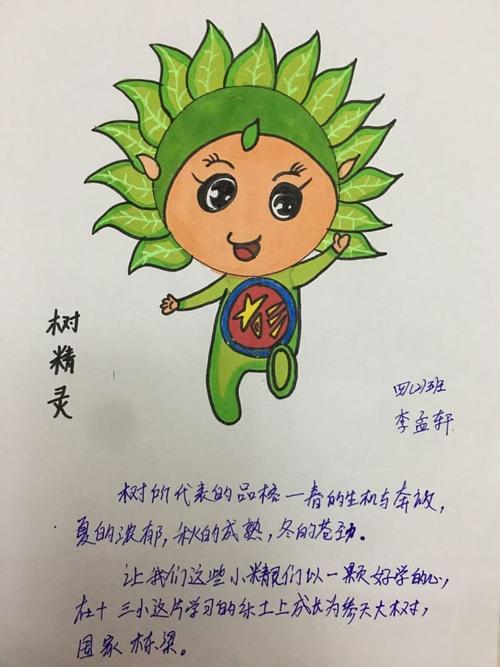 树精灵
四(2)班
李孟轩
树所代表的品格—春的生机与奔放,
夏的浓郁,秋的成熟,冬的苍劲。
让我们这些小精灵们以一颗好学的心,
在十三小这片学习的沃土上成长为参天大树,
国家栋梁。